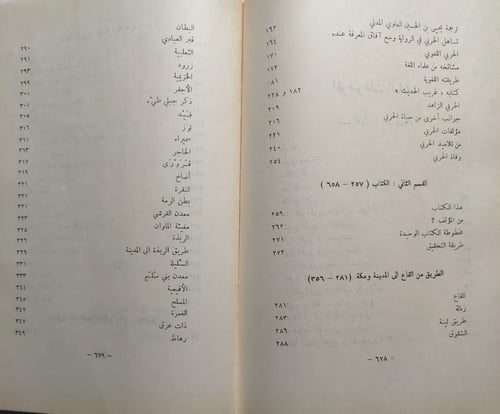 ترجمة يحيى بن الحسين العلوي المدني ١٦٢
تساهل الحربي في الرواية وسع آفاق المعرفة عنده ١٦٤
الحربي اللغوي ١٧٠
مشائخه من علماء اللغة ١٧٣
طريقته اللغوية ١٨١
كتابه « غريب الحديث » ١٨٢ و ٢٢٨
الحربي الزاهد ٢٠٩
جوانب أخرى من حياة الحربي ٢١٦
مؤلفات الحربي ٢٢١
من تلاميذ الحربي ٢٤٠
وفاة الحربي ٢٥٤
القسم الثاني : الكتاب ( ٢٥٧ – ٦٥٨ )
هذا الكتاب ٢٥٩
من المؤلف ؟ ٢٦٢
مخطوطة الكتاب الوحيدة ٢٧١
طريقة التحقيق ٢٧٢
الطريق من القاع الى المدينة ومكة ( ٢٨١ – ٣٥٦ )
القاع ٢٨١
زبالة ٢٨٣
طريق لينة ٢٨٦
الشقوق ٢٨٨
– ٦٧٨ –
البطان
قبر العبادي ٢٩٠
الثعلبية
زرود ٢٩٣
الخزيمية ٢٩٩
الأجفر ٣٠٠
ذكر جبلي طيء ٣٠١
فيد ٣٠٥
توز ٣٠٦
سميراء
الحاجر ٣١٣
قرورى ٣١٧
أضاخ ٣٢١
النقرة ٣٢١
بطن الرمة ٣٢١
معدن القرشي ٣٢٣
مغيثة الماوان
الربذة
طريق الربذة الى المدينة ٣٢٩
السليلة
معدن بني سليم
الأفيعية
المسلح
الغمرة
ذات عرق ٣٤٧
رهاط ٣٤٩
– ٦٧٩ –